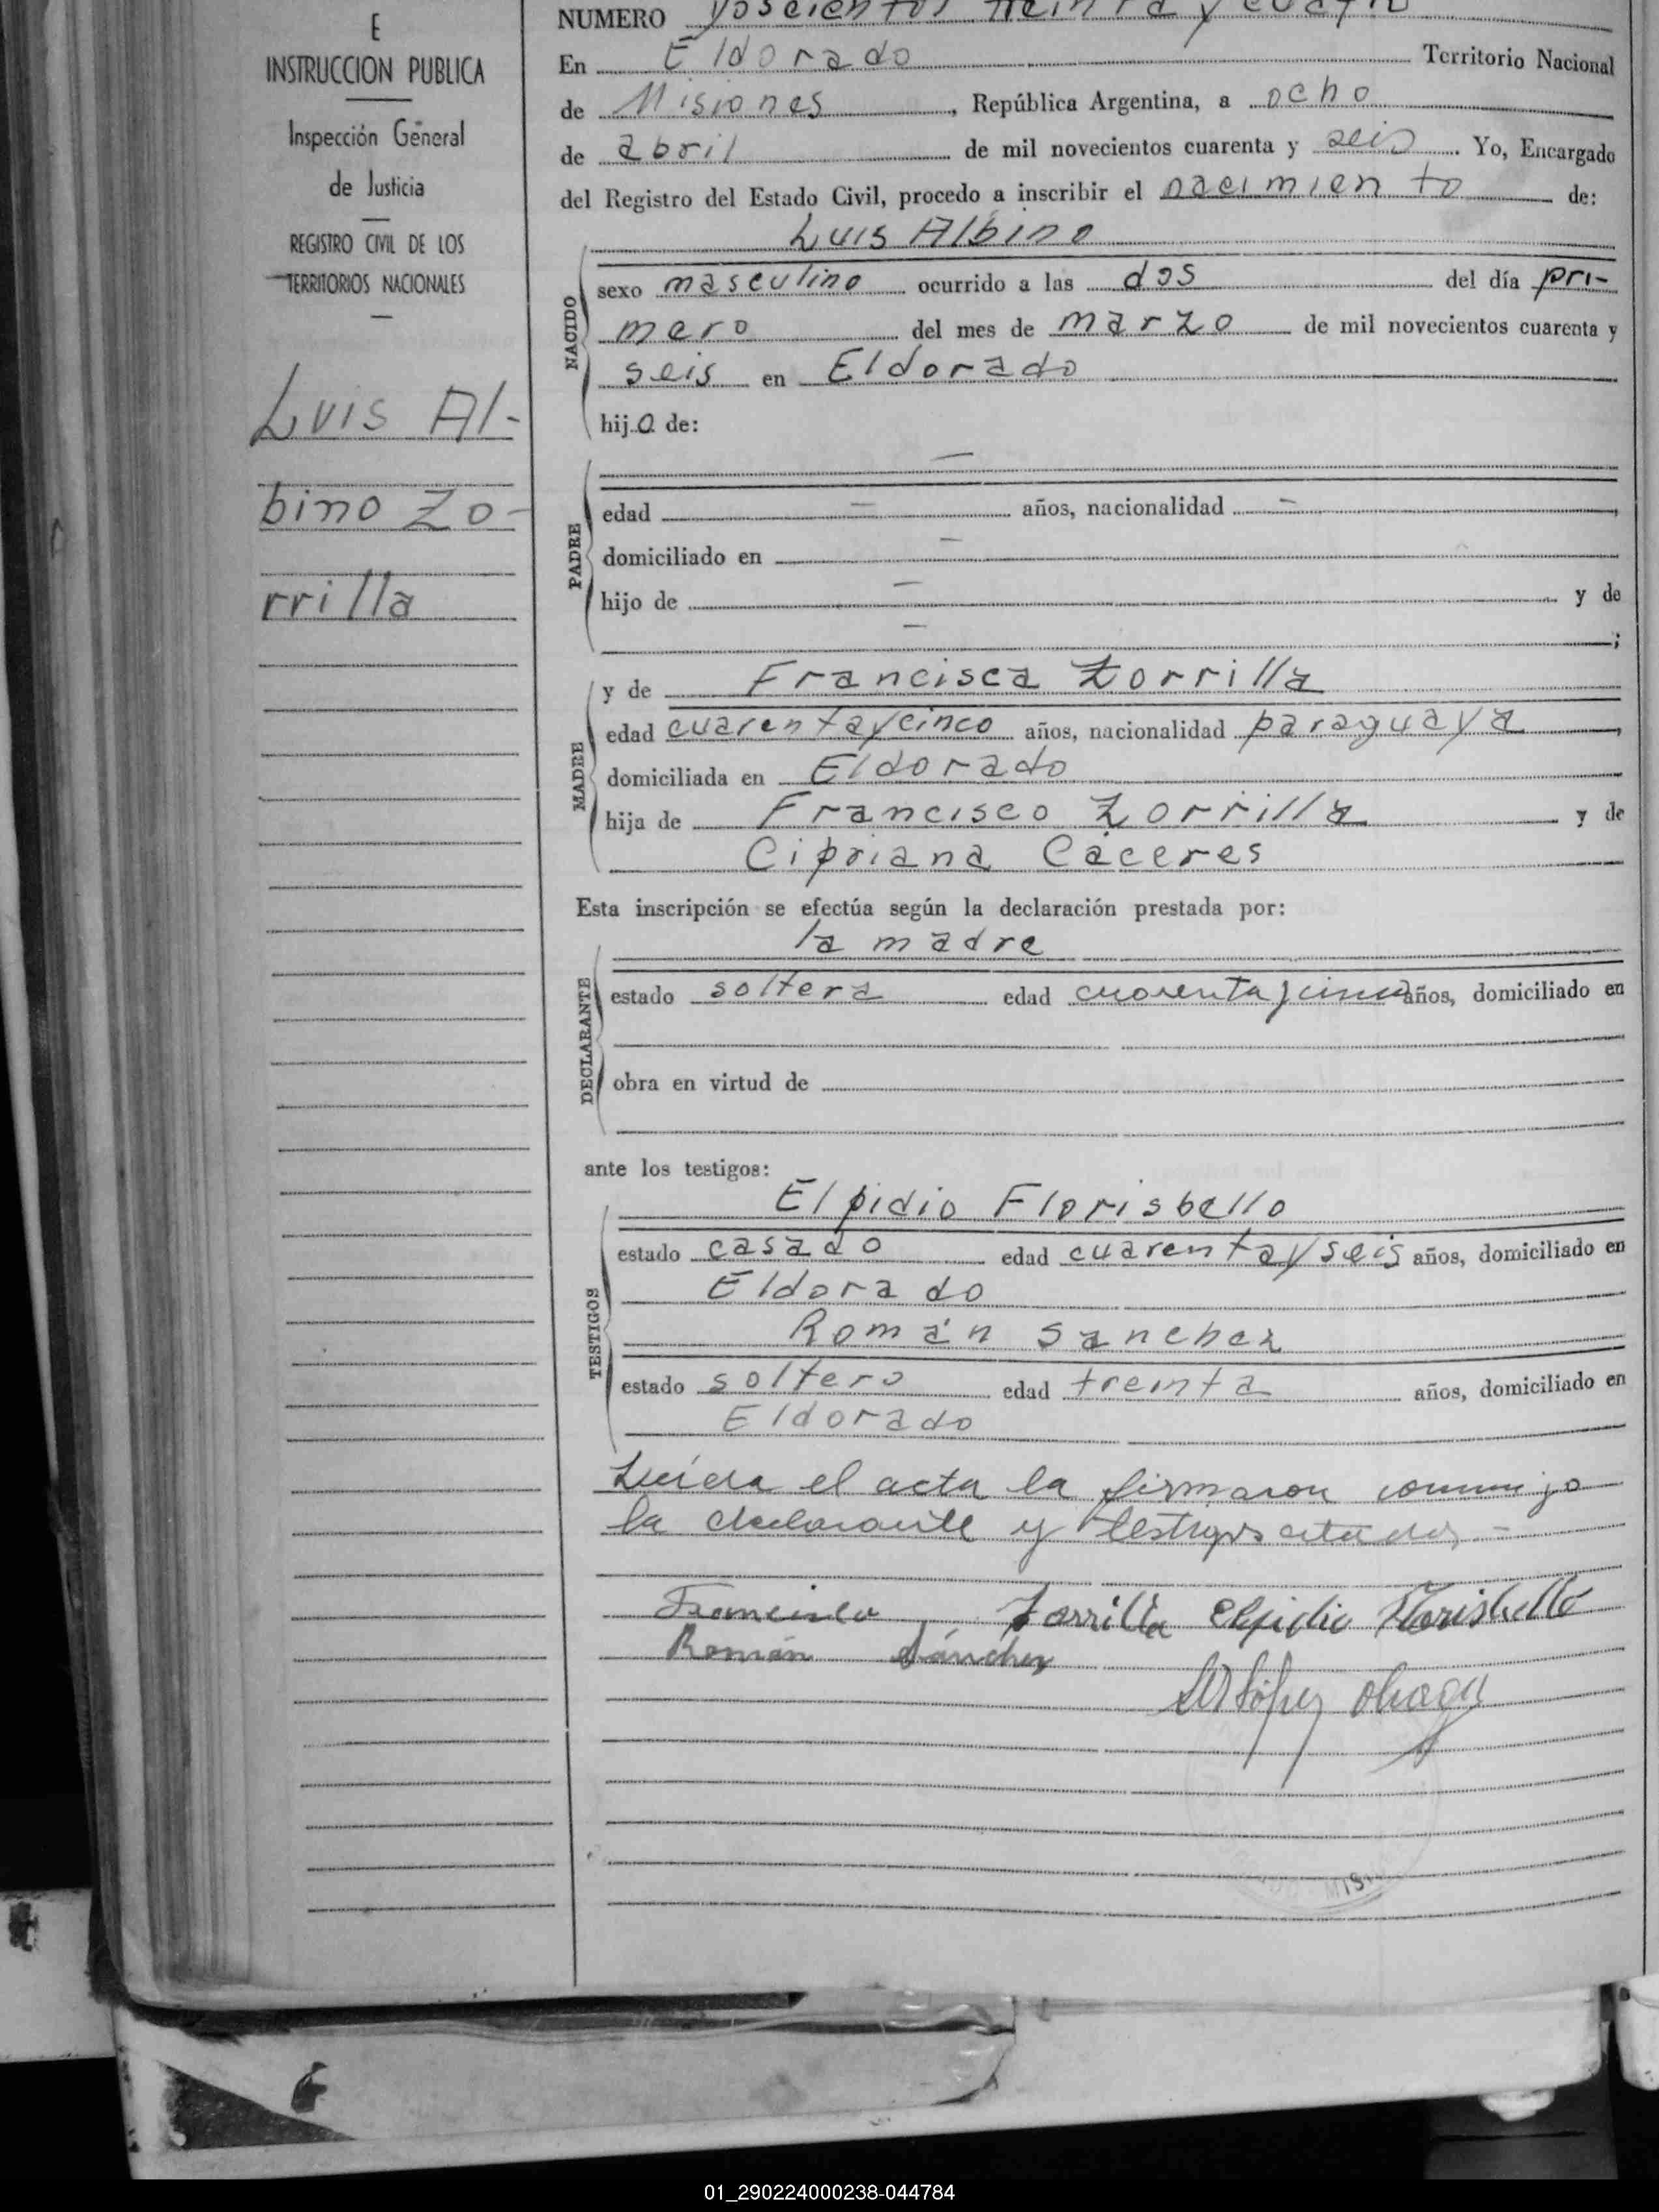 E
INSTRUCCION PUBLICA
Inspección General
de Justicia
REGISTRO CIVIL DE LOS
TERRITORIOS NACIONALES
Luis Al-
bino Zo-
rrilla
NUMERO Doscientos treinta y cuatro
En Eldorado Territorio Nacional
de Misiones, República Argentina, a ocho
de abril de mil novecientos cuarenta y seis. Yo, Encargado
del Registro del Estado Civil, procedo a inscribir el nacimiento de:
Luis Albino
NACIDO
sexo masculino ocurrido a las dos del día pri-
mero del mes de marzo de mil novecientos cuarenta y
seis en Eldorado
hijo de:
PADRE
edad — años, nacionalidad —,
domiciliado en —
hijo de — y de
— ;
MADRE
y de Francisca Zorrilla
edad cuarentaycinco años, nacionalidad paraguaya,
domiciliada en Eldorado
hija de Francisco Zorrilla y de
Cipriana Caceres
Esta inscripción se efectúa según la declaración prestada por:
la madre
DECLARANTE
estado soltera edad cuarenta y cinco años, domiciliado en
obra en virtud de
ante los testigos:
Elpidio Florisbello
TESTIGOS
estado casado edad cuarentayseis años, domiciliado en
Eldorado
Román Sanchez
estado soltero edad treinta años, domiciliado en
Eldorado
Leída el acta la firmaron conmigo
la declarante y testigos citados.-
Francisca Zorrilla Elpidio Florisbello
Román Sánchez
López
01_290224000238-044784